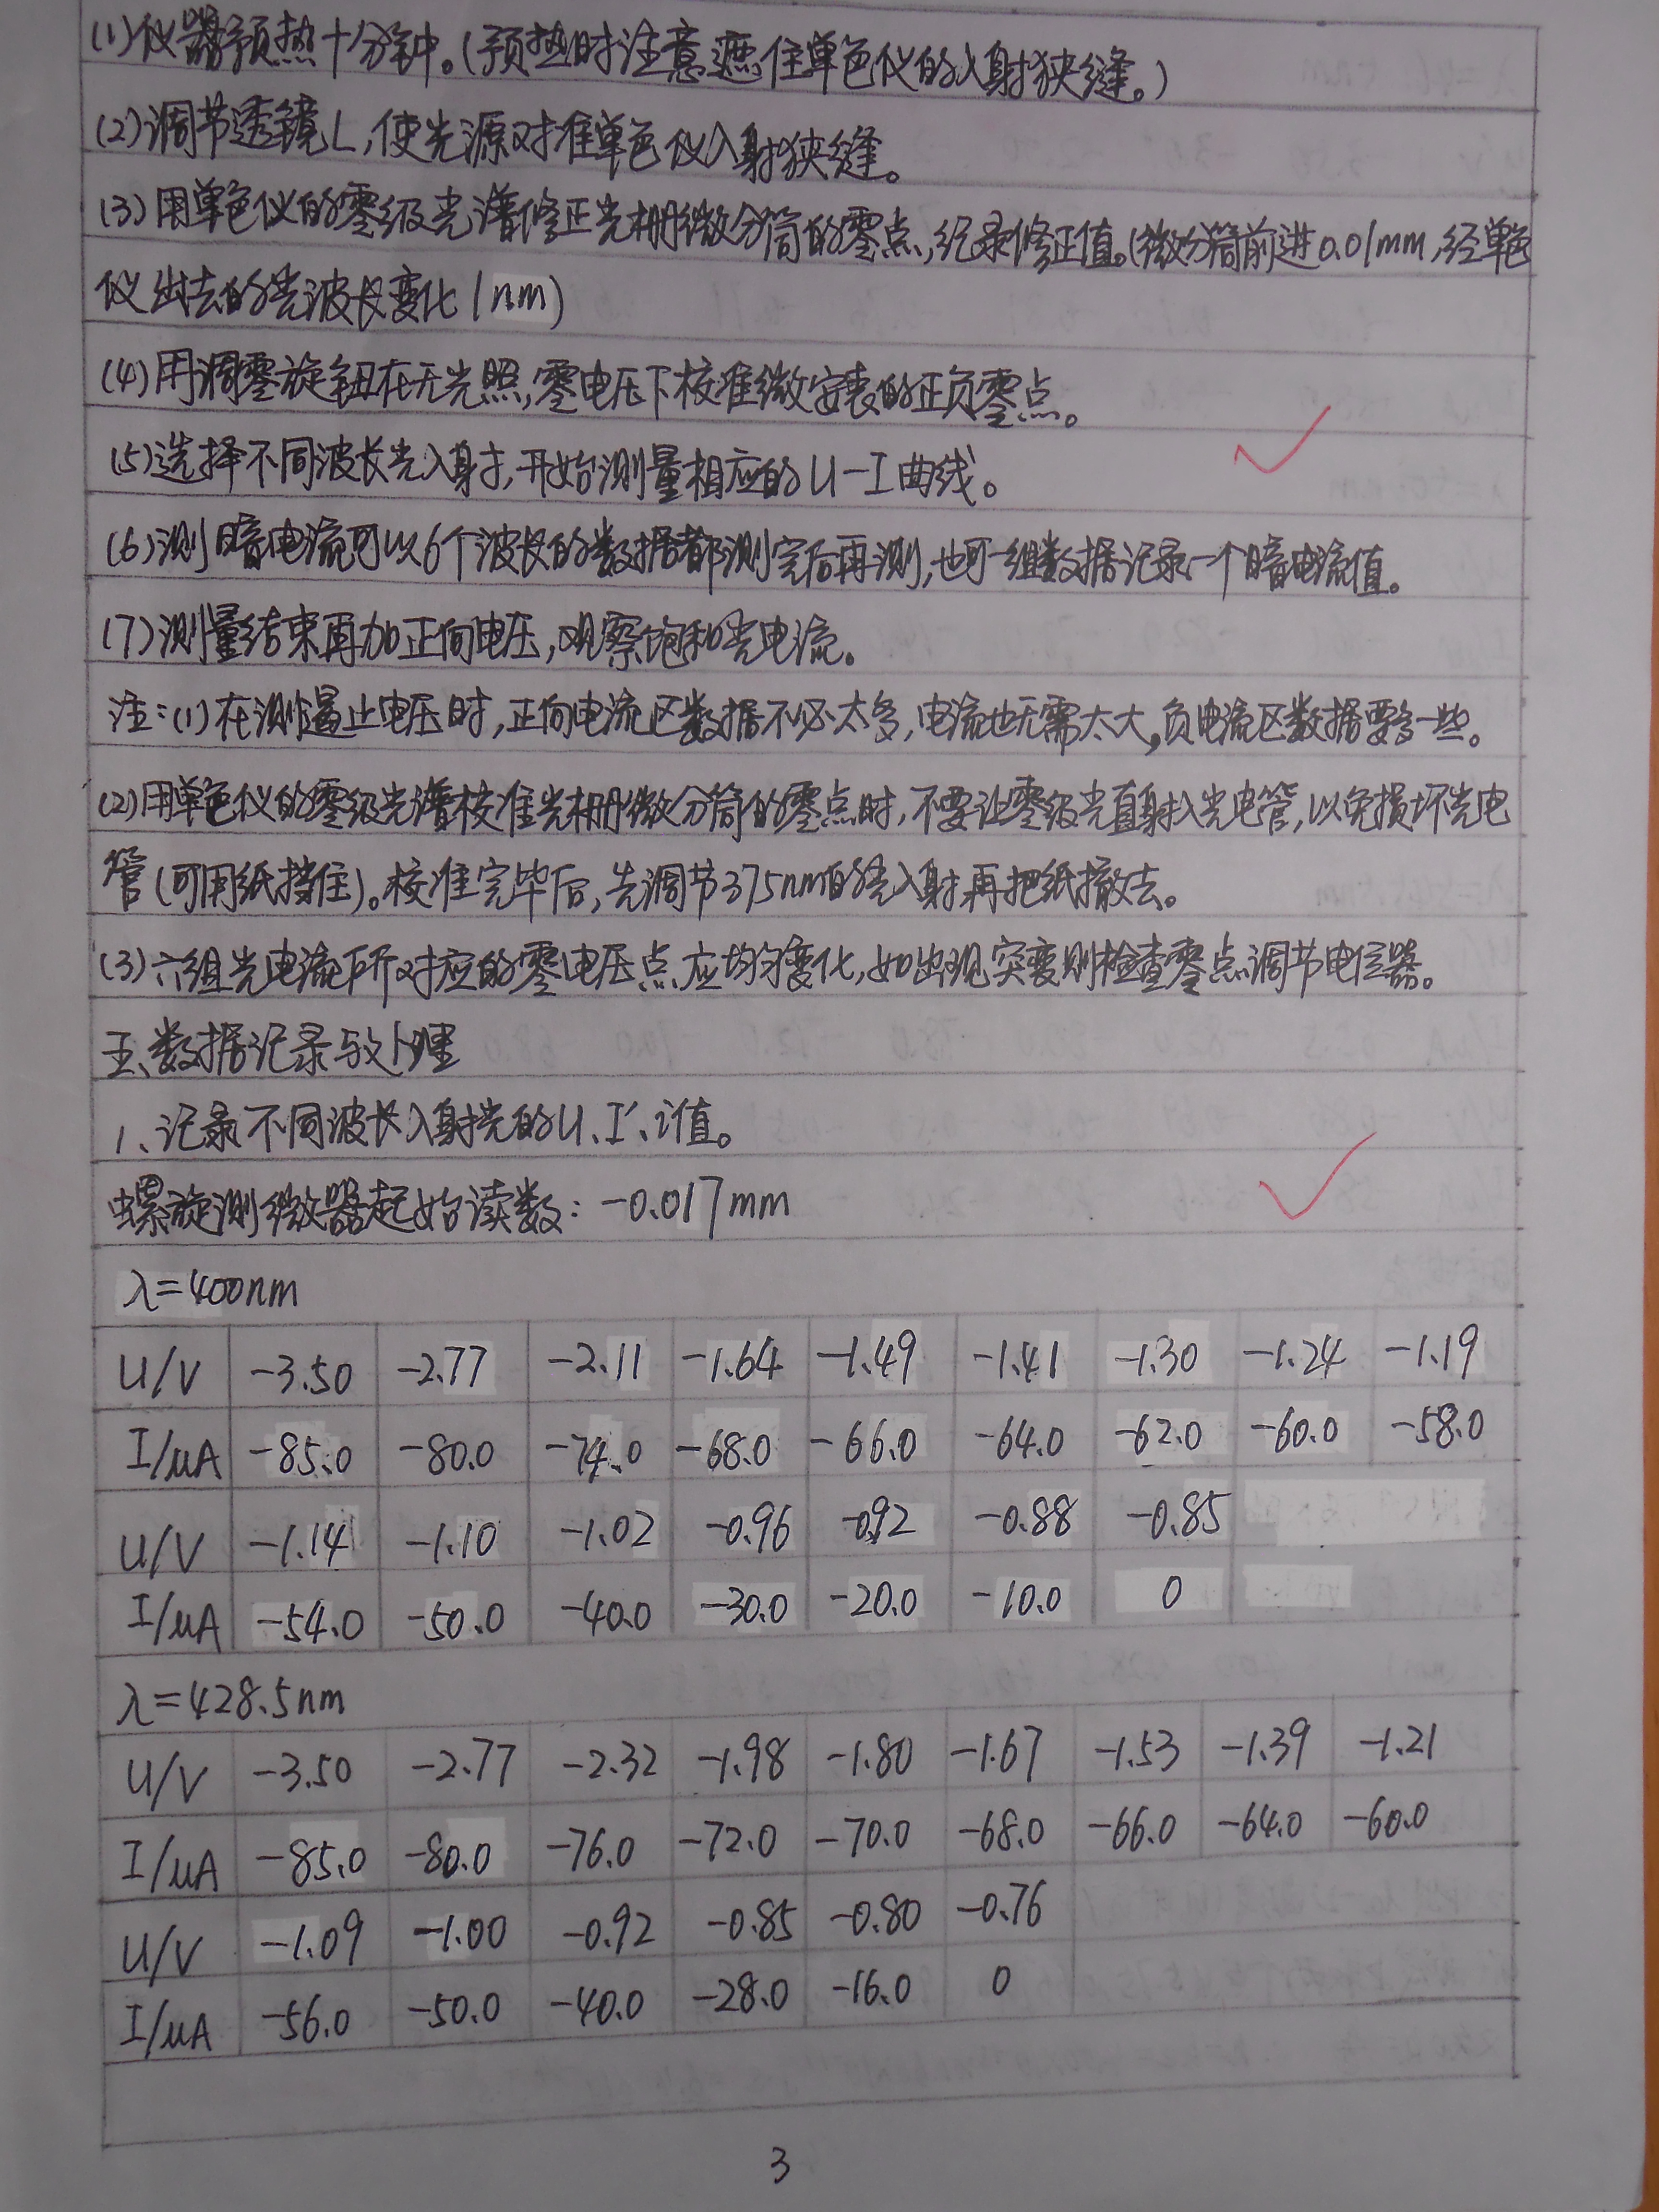 (1)仪器预热十分钟。(预热时注意遮住单色仪的入射狭缝。)
(2)调节透镜L,使光源对准单色仪入射狭缝。
(3)用单色仪的零级光谱修正光栅微分筒的零点,纪录修正值。(微分筒前进0.01mm,经单色
仪出去的光波长变化1nm)
(4)用调零旋钮在无光照,零电压下校准微安表的正负零点。
(5)选择不同波长光入射,开始测量相应的U-I曲线。
(6)测暗电流可以6个波长的数据都测完后再测,也可一组数据记录一个暗电流值。
(7)测量结束再加正向电压,观察饱和光电流。
注:(1)在测遏止电压时,正向电流区数据不必太多,电流也无需太大,负电流区数据要多一些。
(2)用单色仪的零级光谱校准光栅微分筒的零点时,不要让零级光直射入光电管,以免损坏光电
管(可用纸挡住)。校准完毕后,先调节375nm的光入射再把纸撤去。
(3)六组光电流所对应的零电压点应均匀变化,如出现突变则检查零点调节电位器。
五、数据记录与处理
1、记录不同波长入射光的U、I、i值。
螺旋测微器起始读数: -0.017mm
λ=400nm
U/V -3.50 -2.77 -2.11 -1.64 -1.49 -1.41 -1.30 -1.24 -1.19
I/μA -85.0 -80.0 -74.0 -68.0 -66.0 -64.0 -62.0 -60.0 -58.0
U/V -1.14 -1.10 -1.02 -0.96 -0.92 -0.88 -0.85
I/μA -54.0 -50.0 -40.0 -30.0 -20.0 -10.0 0
λ=428.5nm
U/V -3.50 -2.77 -2.32 -1.98 -1.80 -1.67 -1.53 -1.39 -1.21
I/μA -85.0 -80.0 -76.0 -72.0 -70.0 -68.0 -66.0 -64.0 -60.0
U/V -1.09 -1.00 -0.92 -0.85 -0.80 -0.76
I/μA -56.0 -50.0 -40.0 -28.0 -16.0 0
3